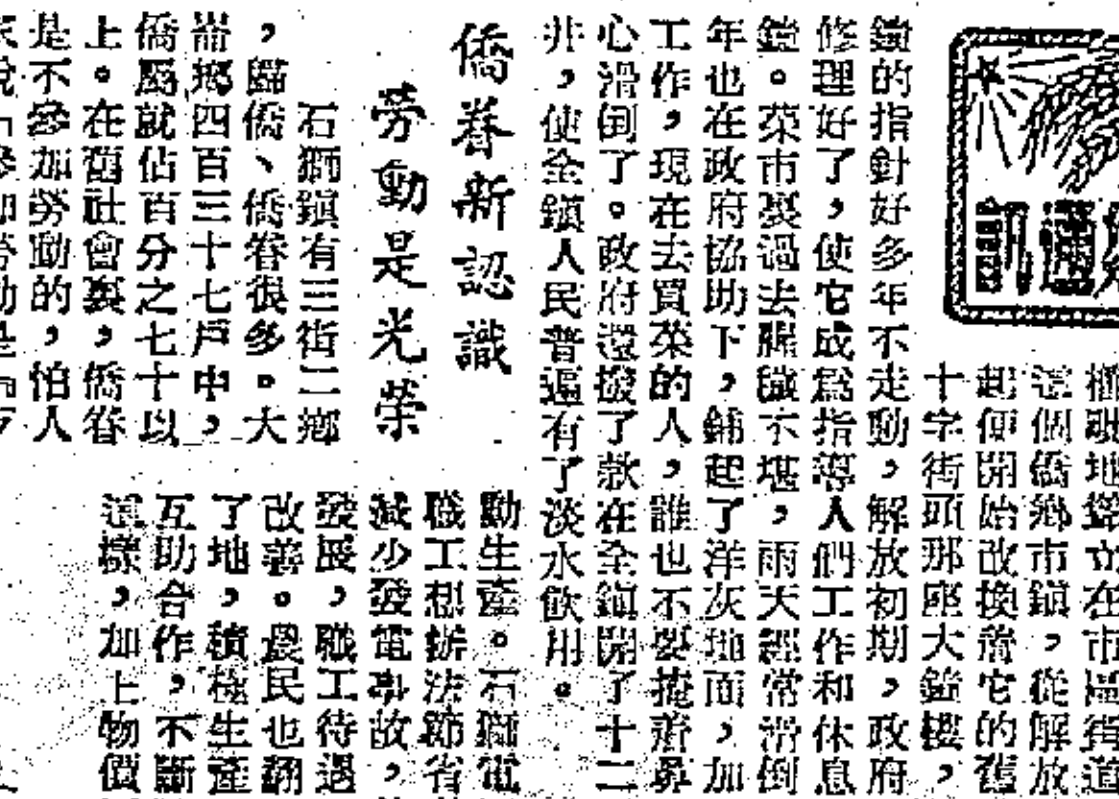 通訊
櫃聳地聳立在市區街道
這個僑鄉市鎮，從解放
起便開始改換着它的舊
十字街頭那座大鐘樓，
鐘的指針好多年不走動，解放初期，政府
修理好了，使它成爲指導人們工作和休息
鐘。菜市裏過去腥臟不堪，雨天經常滑倒
年也在政府協助下，鋪起了洋灰地面，加
工作，現在去買菜的人，誰也不要掩着鼻
心滑倒了。政府還撥了款在全鎮開了十二
井，使全鎮人民普遍有了淡水飲用。
僑眷新認識
勞動是光榮
石獅鎮有三街二鄉
，歸僑、僑眷很多。大
崙鄉四百三十七戶中，
僑屬就佔百分之七十以
上。在舊社會裏，僑眷
是不參加勞動的，怕人
動生產。石獅電
職工想辦法節省
減少發電事故，
發展，職工待遇
改善。農民也翻
了地，積極生產
互助合作，不斷
這樣，加上物價